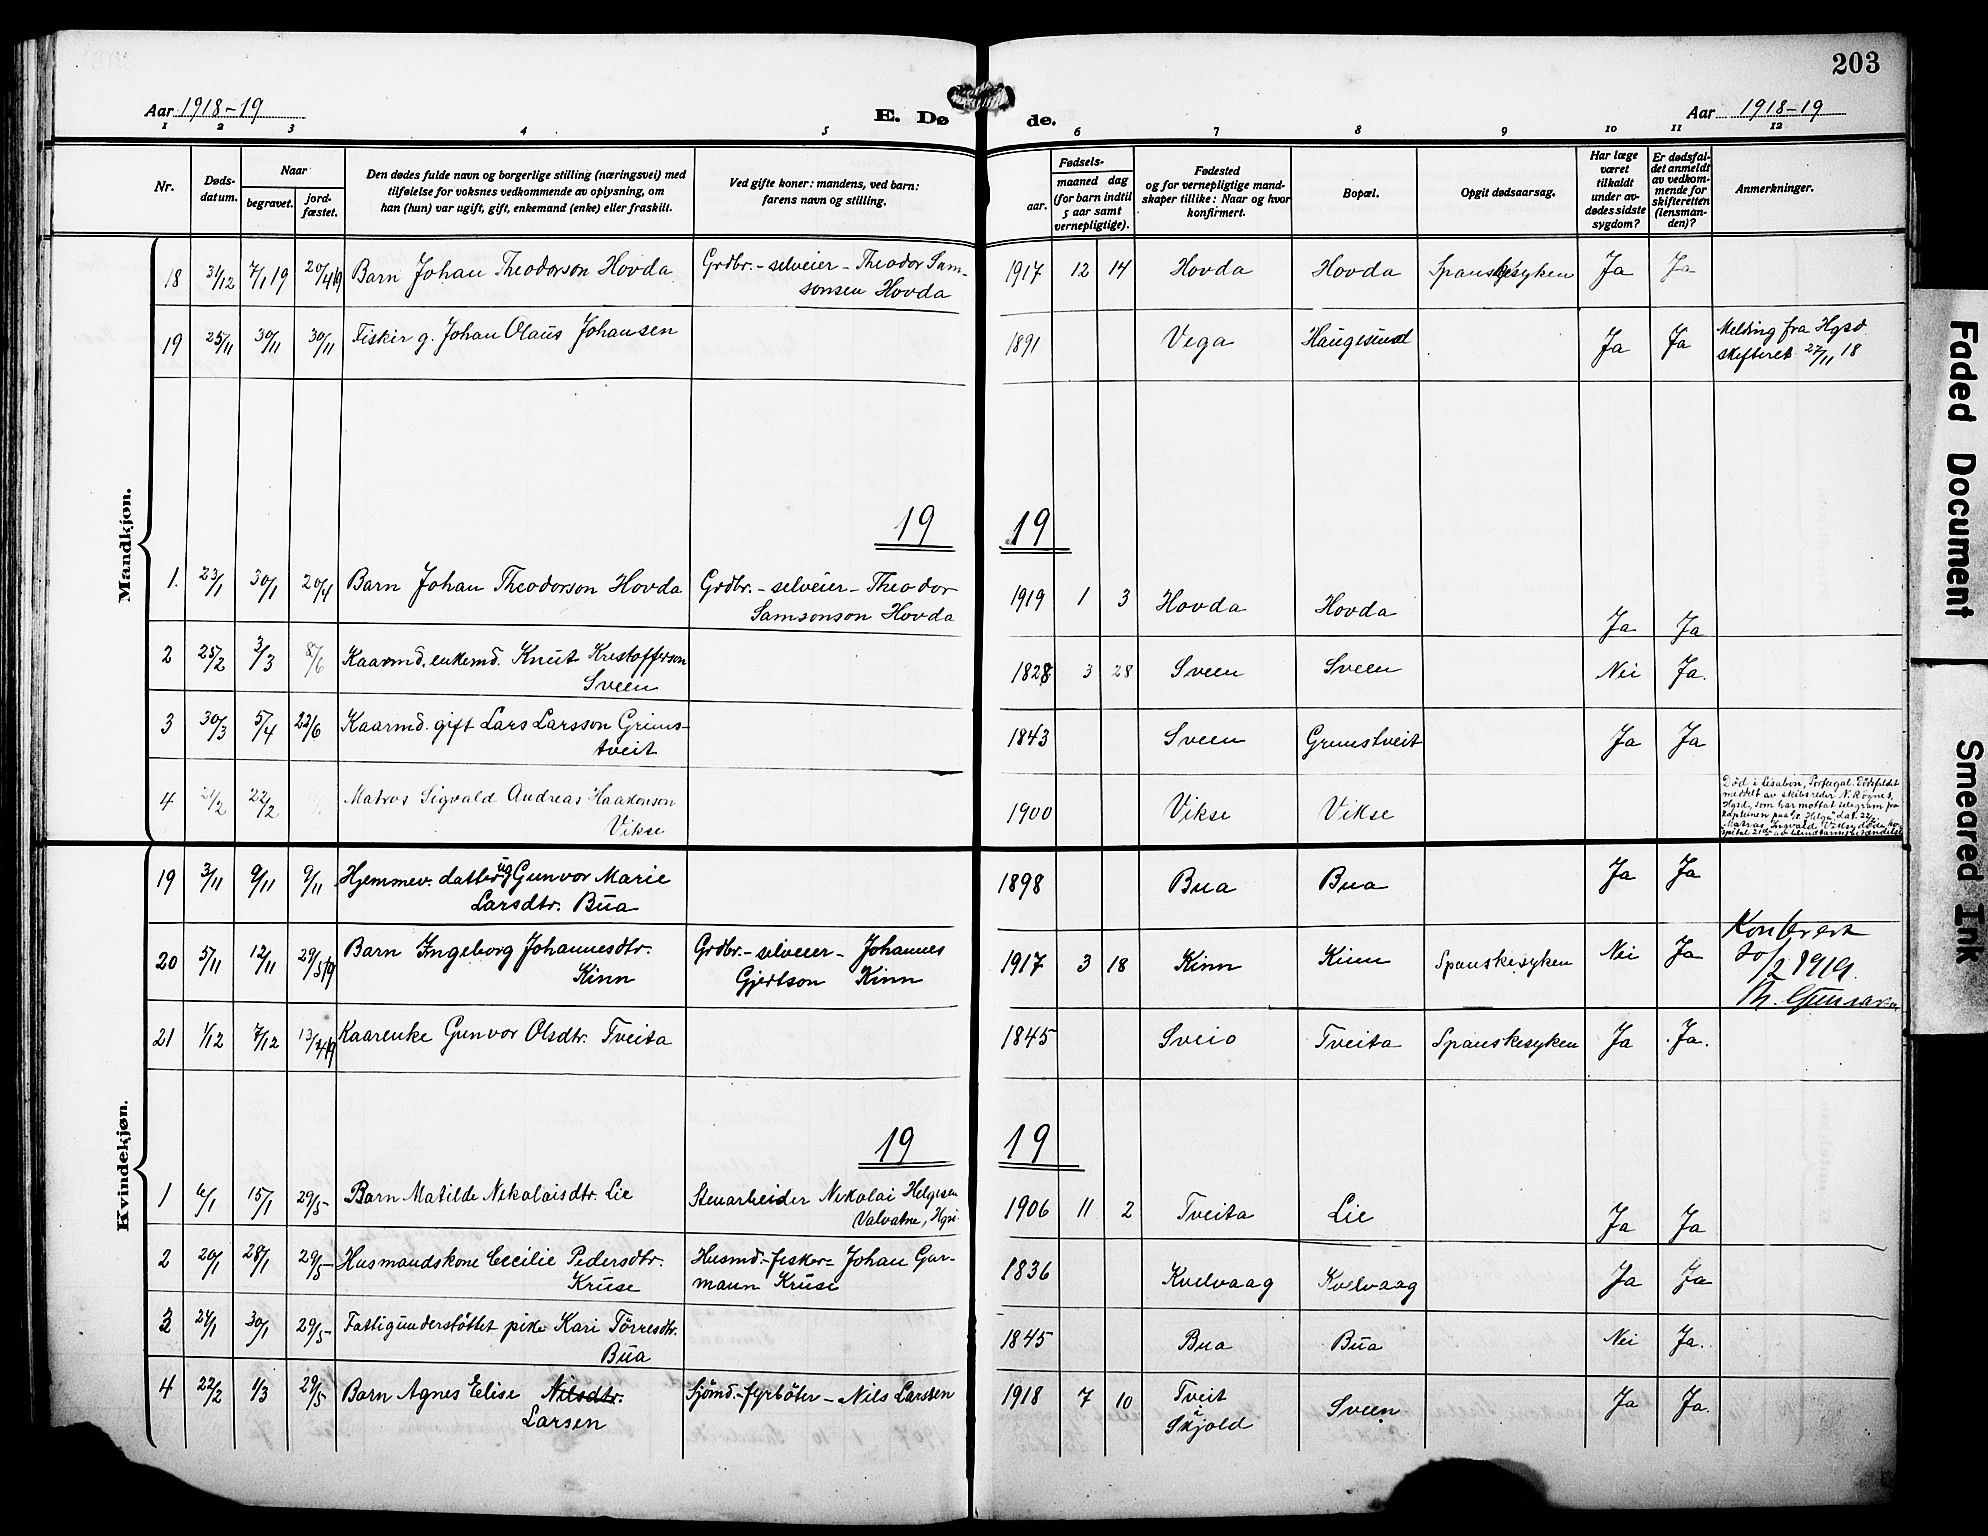 203
Aar 1918-19
E. Døde.
Aar 1918-19
1 2 3 4 5 6 7 8 9 10 11 12
Nr.
Døds-
datum.
Naar
begravet.
jord-
fæstet.
Den dødes fulde navn og borgerlige stilling (næringsvei) med
tilføielse for voksnes vedkommende av oplysning, om
han (hun) var ugift, gift, enkemand (enke) eller fraskilt.
Ved gifte koner: mandens, ved barn:
farens navn og stilling.
Fødsels-
aar.
maaned dag
(for barn indtil
5 aar samt
vernepligtige).
Fødested
og for vernepligtige mand-
skaper tillike: Naar og hvor
konfirmert.
Bopæl.
Opgit dødsaarsag.
Har læge
været
tilkaldt
under av-
dødes sidste
sygdom?
Er dødsfal-
det anmeldt
av vedkom-
mende for
skifteretten
(lensman-
den)?
Anmerkninger.
Mandkjøn.
18 31/12 7/1 19 20/4 19 Barn Johan Theodorson Hovda Grdbr.- selveier - Theodor Sam-
sonsen Hovda 1917 12 14 Hovda Hovda Spanskesyken Ja Ja
19 25/11 30/11 30/11 Fisker g. Johan Olaus Johansen 1891 Vega Haugesund Ja Ja Melding fra Hgsd.
skifteret 27/11 18
19 19
1. 23/1 30/1 20/4 Barn Johan Theodorson Hovda Grdbr.- selveier - Theodor
Samsonson Hovda 1919 1 3 Hovda Hovda Ja Ja
2 25/2 3/3 8/6 Kaarmd. enkemd. Knut Kristofferson
Sveen 1828 3 28 Sveen Sveen Nei Ja.
3 30/3 5/4 22/6 Kaarmd. gift Lars Larsson Grims-
tveit 1843 Sveen Grimstveit Ja Ja
4 21/2 22/2 Matros Sigvald Andreas Haakonson
Vikse 1900 Vikse Vikse Død i Lisabon, Portugal. Dödsfaldet
meddelt av skibsreder N. Røgnes,
Hgsd., som har mottat telegram fra
kapteinen paa "Helga" dat. 22/2
Kvindekjøn.
19 3/11 9/11 9/11 Hjemmev. datter ug Gunvor Marie
Larsdtr. Bua 1898 Bua Bua Ja Ja
20 5/11 12/11 29/5 19 Barn Ingeborg Johannesdtr.
Kinn Grdbr.- selveier - Johannes
Gjertson Kinn 1917 3 18 Kinn Kinn Spanskesyken Nei Ja Konferert
20/2 1919.
21 1/12 7/12 13/4 19 Kaarenke Gunvor Olsdtr. Tveita 1845 Sveio Tveita Spanskesyken Ja Ja.
19 19
1 6/1 15/1 29/5 Barn Matilde Nikolaisdtr. Lie Stenarbeider Nikolai Helgesen
Valvatne, Hgs. 1906 11 2 Tveita Lie Ja Ja
2 20/1 28/1 29/5 Husmandskone Cecilie Pedersdtr.
Kruse Husmd.- fisker- Johan Gar-
mann Kruse 1836 Kvelvaag Kvelvaag Ja Ja
3 24/1 30/1 29/5 Fattigunderstöttet pike Kari Törresdtr.
Bua 1845 Bua Bua Nei Ja.
4 22/2 1/3 29/5 Barn Agnes Elise Nilsdtr.
Larsen Sjömd.- fyrböter - Nils Larssen 1918 7 10 Tveit
i
Skjold Sveen Ja Ja.
Faded Document
Smeared Ink